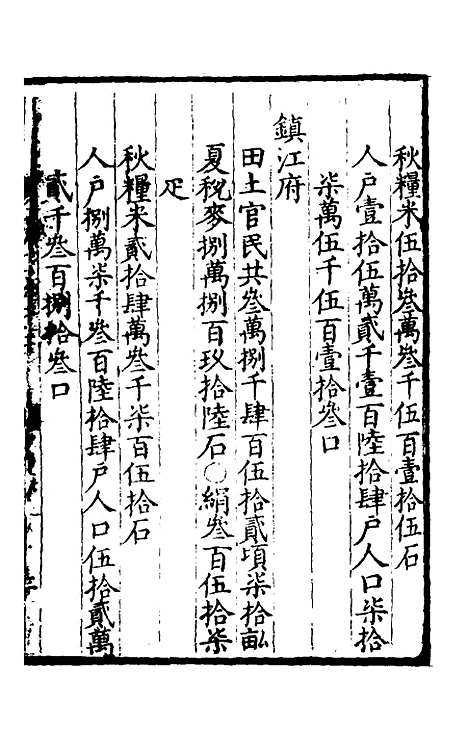 秋糧米伍拾叁萬叁千伍百壹拾伍石
人户壹拾伍萬貳千壹百陸拾肆户人口柒拾
柒萬伍千伍百壹拾叁口
鎮江府
田土官民共叁萬捌千肆百伍拾貳頃柒拾畆
夏稅麥捌萬捌百玖拾陸石〇絹叁百伍拾柒
疋
秋糧米貳拾肆萬叁千柒百伍拾石
人户捌萬柒千叁百陸拾肆户人口伍拾貳萬
貳千叁百捌拾叁口